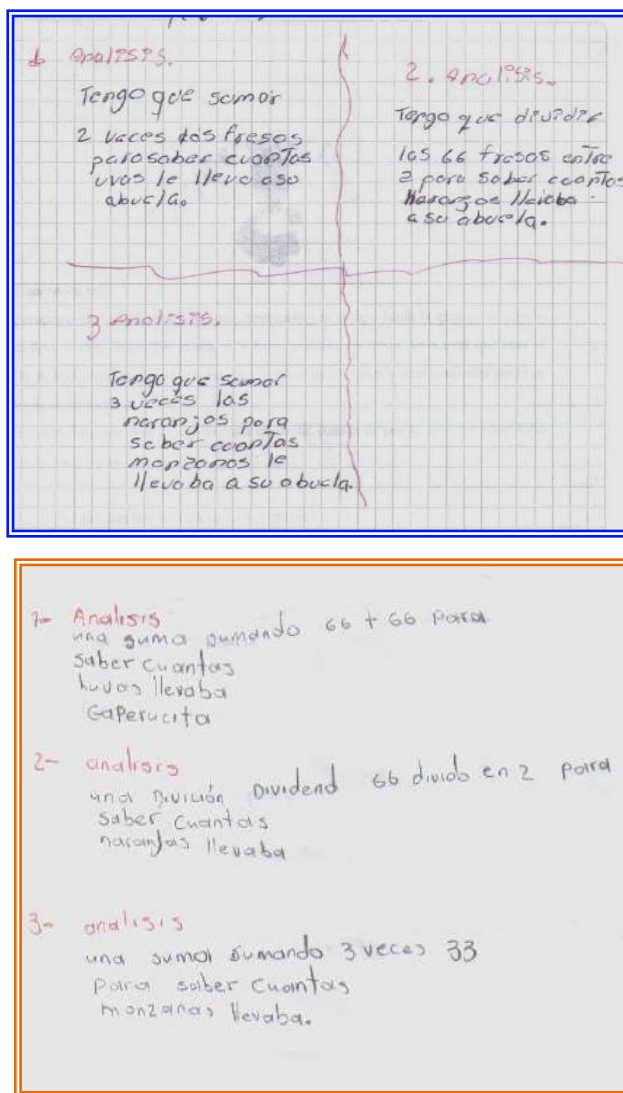 1 Analisis.
Tengo que sumar
2 veces las fresas
para saber cuantas
uvas le lleva a su
abuela.
2. Analisis.
Tengo que dividir
las 66 fresas entre
2 para saber cuantas
Naranjas llevaba
a su abuela.
3 Analisis.
Tengo que sumar
3 veces las
naranjas para
saber cuantas
manzanas le
llevaba a su abuela.
1- Analisis
una suma sumando 66 + 66 para
saber cuantas
huvas llevaba
Caperucita
2- analisis
una División Dividend 66 divido en 2 para
saber cuantas
naranjas llevaba
3- analisis
una suma sumando 3 veces 33
para saber cuantas
manzanas llevaba.